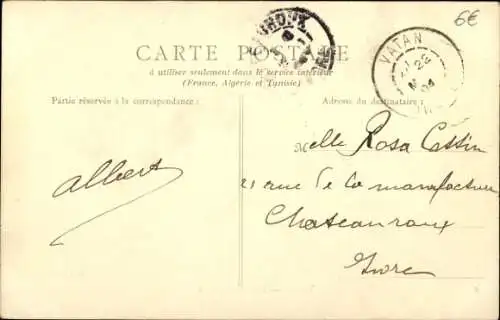 6€
CARTE POSTALE
à utiliser seulement dans le service intérieur
(France, Algérie et Tunisie)
Partie réservée à la correspondance:
Adresse du destinataire:
VATAN
Melle Rosa Cassin
21 rue de la manufacture
Chateauroux
Indre
Albert